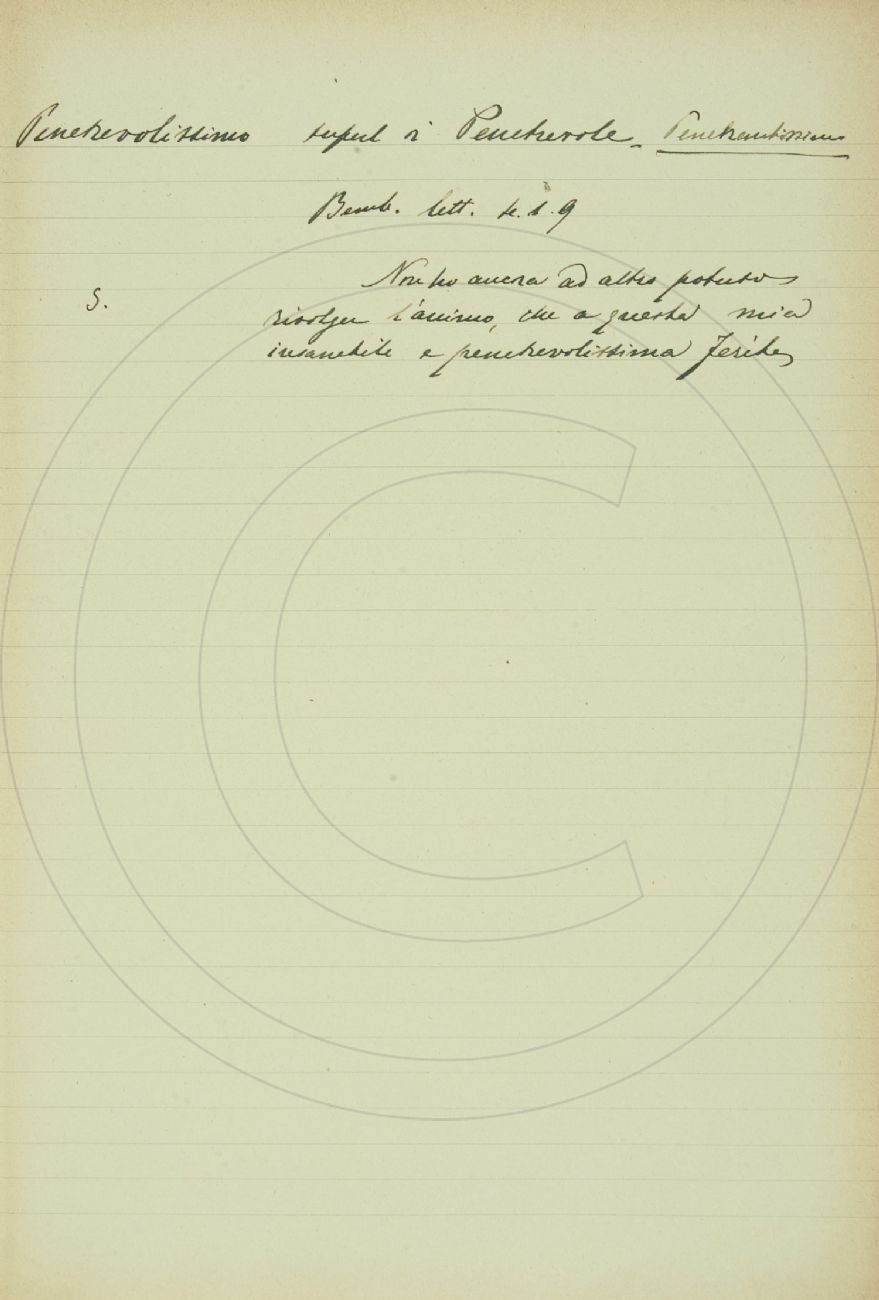 Penetrevolissimo superl di Penetrevole. Penetrantissimo
Bemb. lett. 1. 9
S.
Non ho ancora ad altro potuto
rivolger l'animo, che a questa mia
insanabile e penetrevolissima ferita